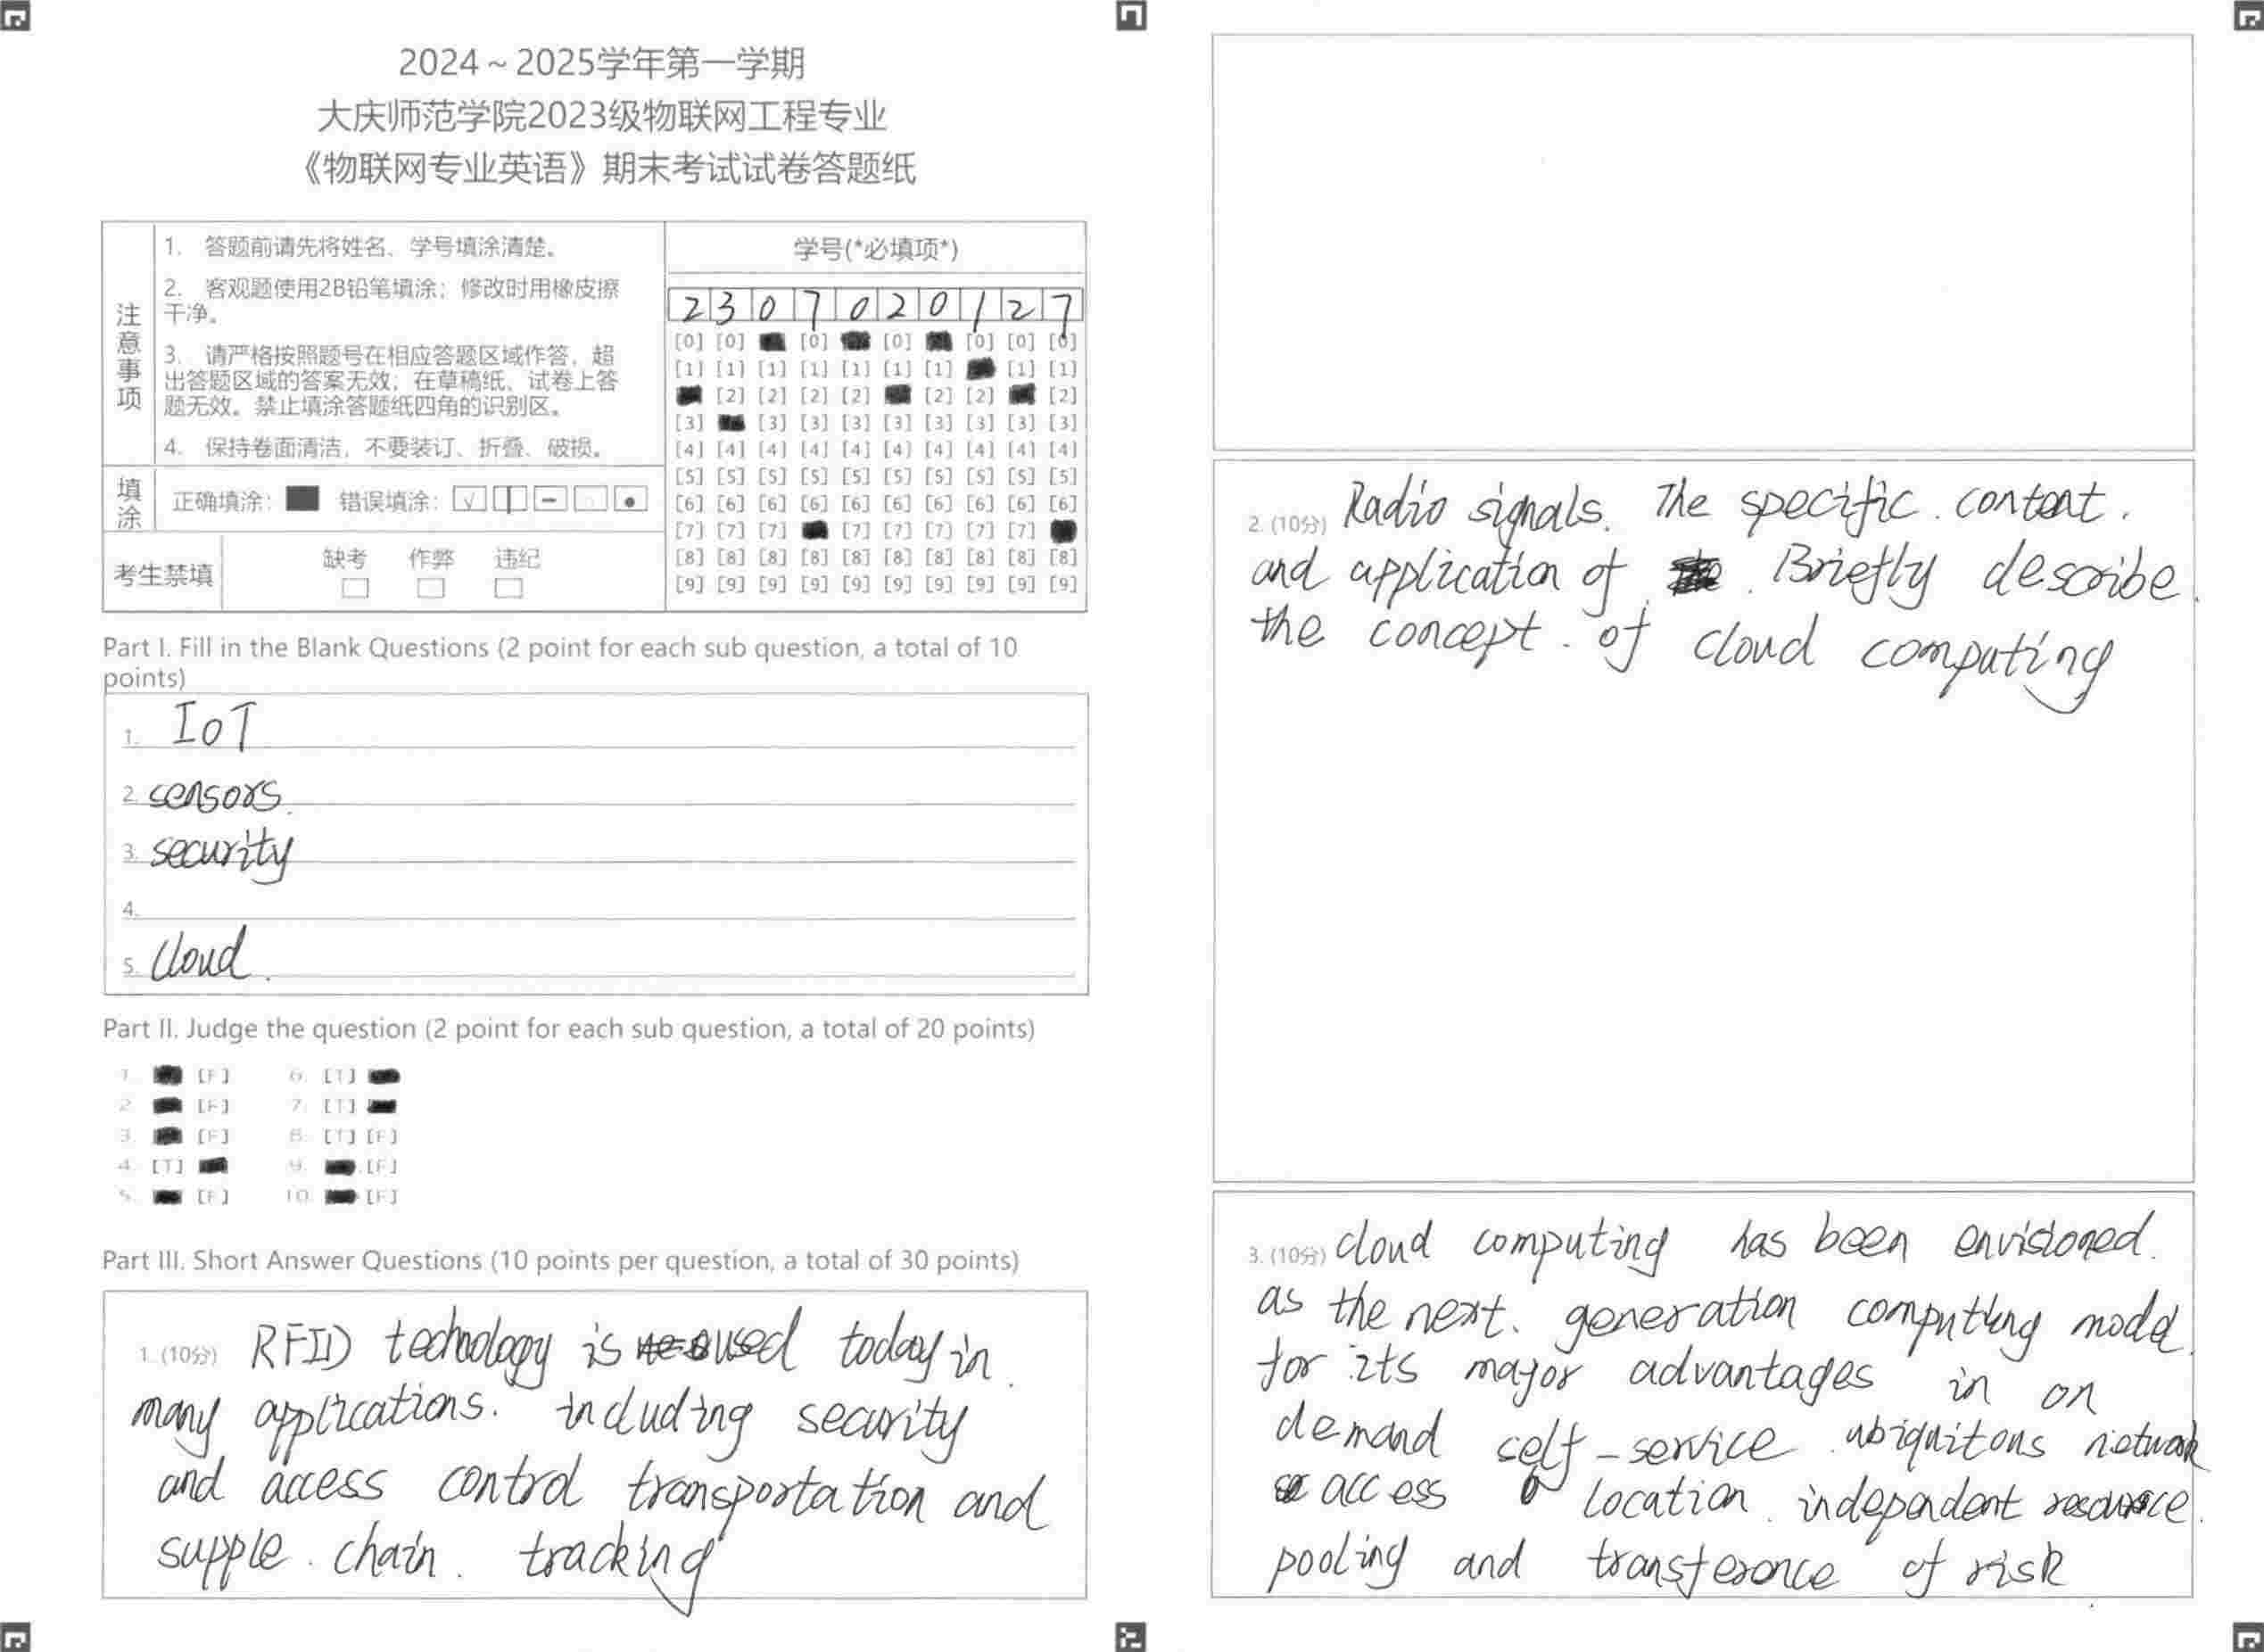 2024～2025学年第一学期
大庆师范学院2023级物联网工程专业
《物联网专业英语》期末考试试卷答题纸
注意事项
1. 答题前请先将姓名、学号填涂清楚。
2. 客观题使用2B铅笔填涂；修改时用橡皮擦
干净。
3. 请严格按照题号在相应答题区域作答，超
出答题区域的答案无效；在草稿纸、试卷上答
题无效。禁止填涂答题纸四角的识别区。
4. 保持卷面清洁，不要装订、折叠、破损。
填涂
正确填涂： 错误填涂：
考生禁填
缺考 作弊 违纪
学号(*必填项*)
2 3 0 7 0 2 0 1 2 7
[0] [0] [0] [0] [0] [0] [0]
[1] [1] [1] [1] [1] [1] [1] [1] [1]
[2] [2] [2] [2] [2] [2] [2]
[3] [3] [3] [3] [3] [3] [3] [3] [3]
[4] [4] [4] [4] [4] [4] [4] [4] [4] [4]
[5] [5] [5] [5] [5] [5] [5] [5] [5] [5]
[6] [6] [6] [6] [6] [6] [6] [6] [6] [6]
[7] [7] [7] [7] [7] [7] [7] [7]
[8] [8] [8] [8] [8] [8] [8] [8] [8] [8]
[9] [9] [9] [9] [9] [9] [9] [9] [9] [9]
Part I. Fill in the Blank Questions (2 point for each sub question, a total of 10
points)
1. IoT
2. sensors.
3. security
4.
5. Cloud.
Part II. Judge the question (2 point for each sub question, a total of 20 points)
1. [F] 6. [T]
2. [F] 7. [T]
3. [F] 8. [T] [F]
4. [T] 9. [F]
5. [F] 10. [F]
Part III. Short Answer Questions (10 points per question, a total of 30 points)
1. (10分) RFID technology is used today in.
many applications. including security
and access control transportation and
supple. chain. tracking
2. (10分) Radio signals. The specific. content.
and application of. Briefly describe.
the concept. of cloud computing
3. (10分) cloud computing has been envisioned.
as the next. generation computing model.
for its major advantages in on
demand self-service ubiquitous network
access location. independent resource.
pooling and transference of risk